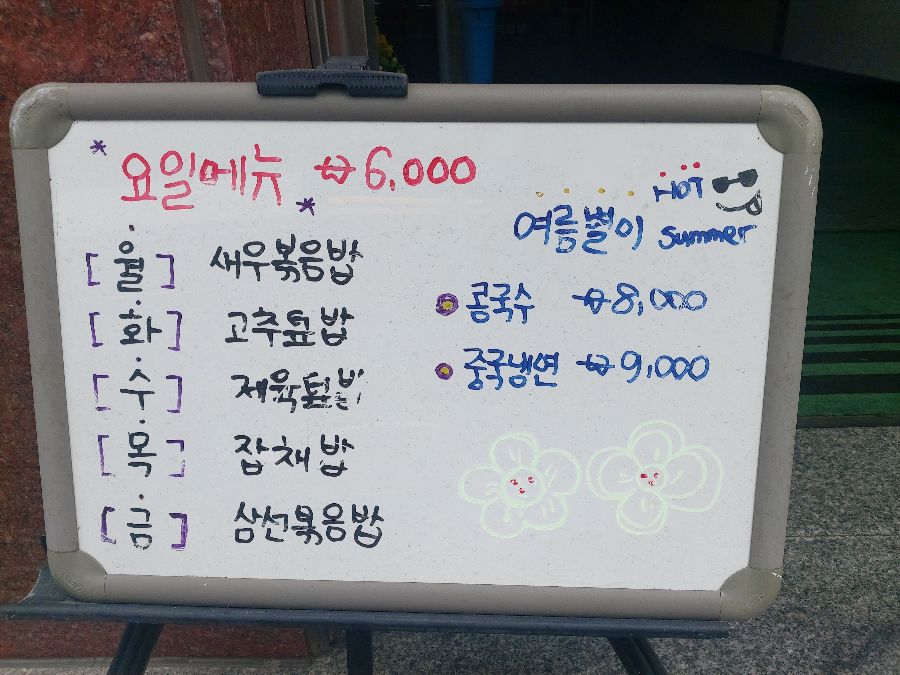 * 요일메뉴 ₩6,000 *
[월] 새우볶음밥
[화] 고추덮밥
[수] 제육덮밥
[목] 잡채밥
[금] 삼선볶음밥
HOT
여름별미 SUMMER
콩국수 ₩8,000
중국냉면 ₩9,000